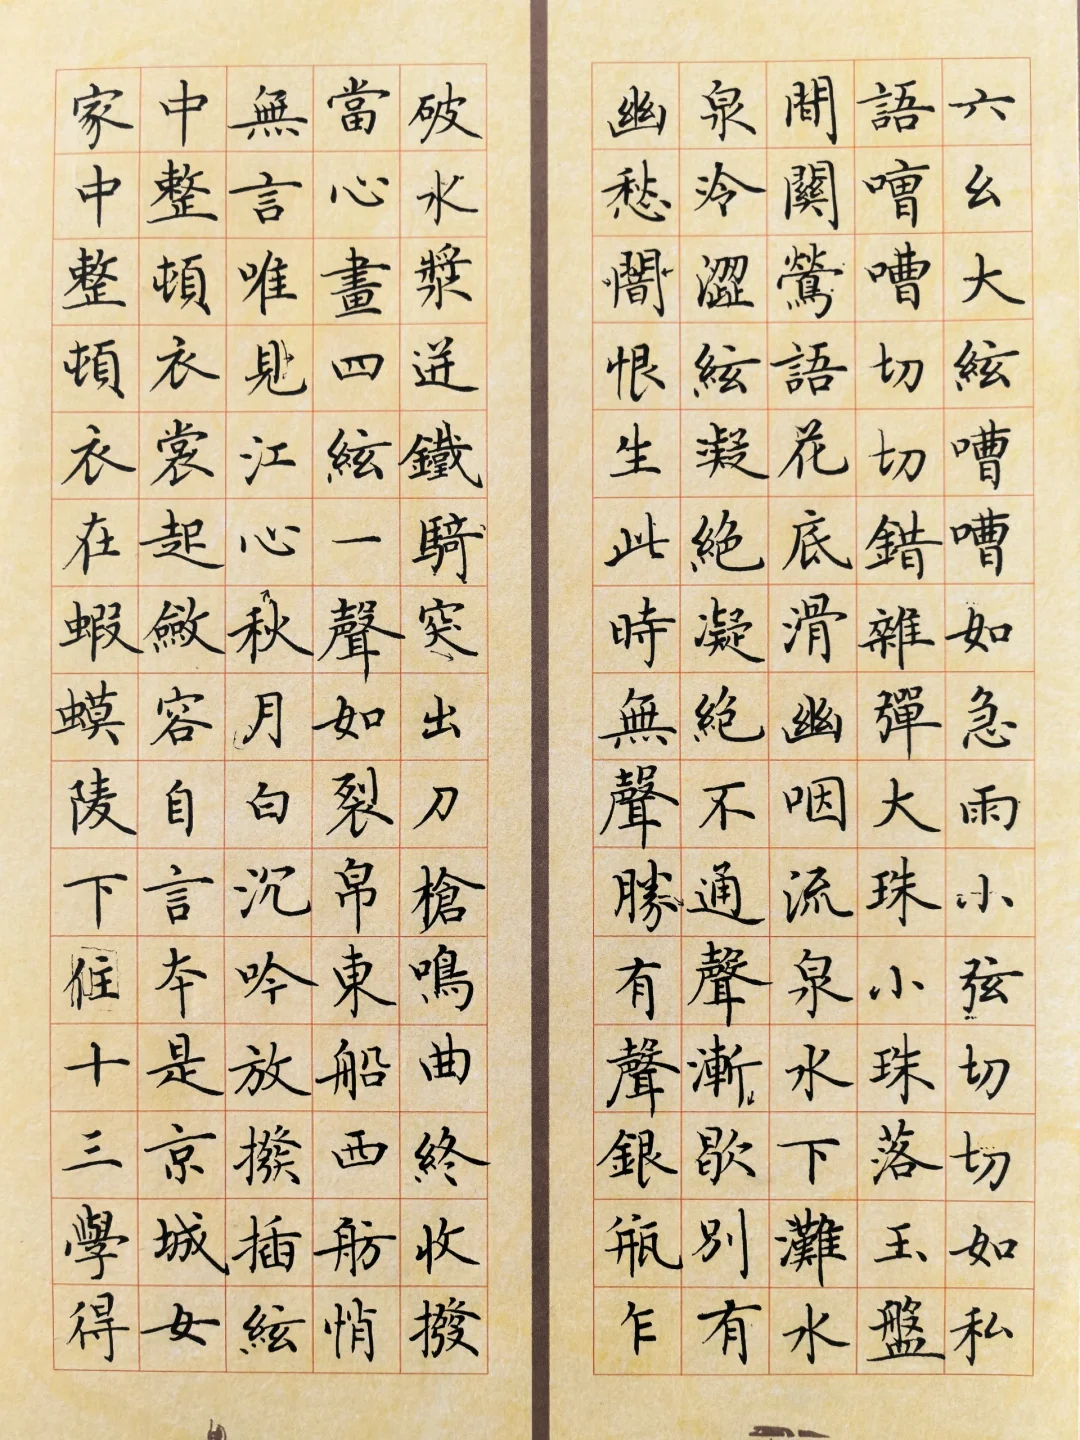 六幺大絃嘈嘈如急雨小弦切切如私
語嘈嘈切切錯雜彈大珠小珠落玉盤
間關鶯語花底滑幽咽流泉水下灘水
泉冷澀絃凝絕凝絕不通聲漸歇別有
幽愁闇恨生此時無聲勝有聲銀瓶乍
破水漿迸鐵騎突出刀槍鳴曲終收撥
當心畫四絃一聲如裂帛東船西舫悄
無言唯見江心秋月白沉吟放撥插絃
中整頓衣裳起斂容自言本是京城女
家中整頓衣在蝦蟆陵下住十三學得